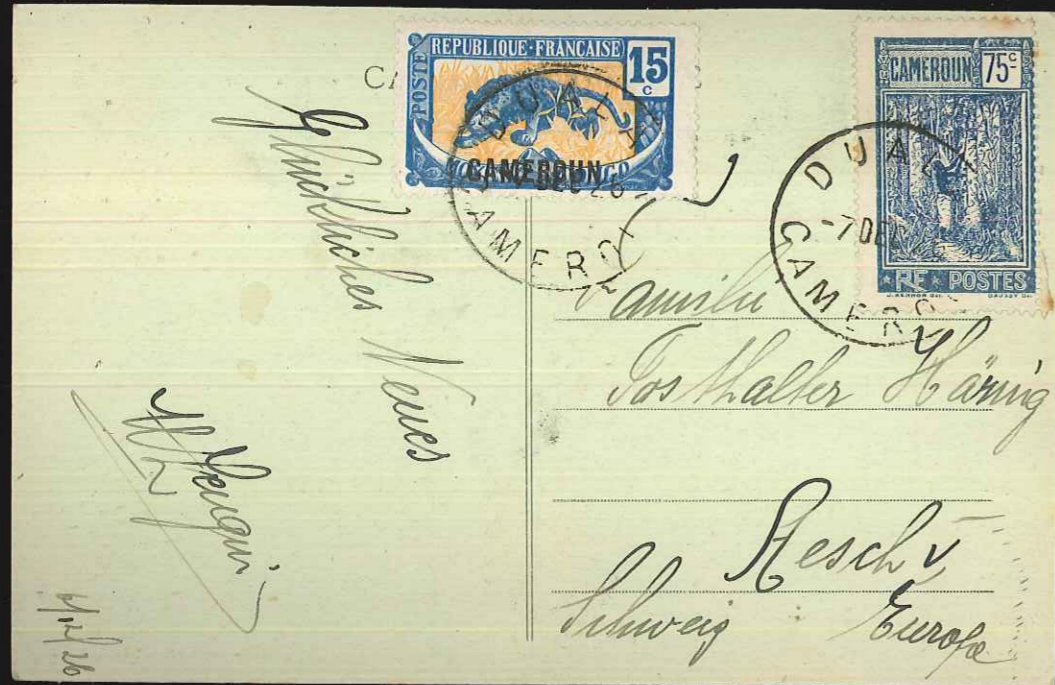 REPUBLIQUE·FRANÇAISE
POSTE
15
c
CAMEROUN
DUALA
7 DEC 26
CAMEROU
CAMEROUN
75c
RF POSTES
DUALA
-7 DEC
CAMEROU
Glückliches Neues
6/12/26
Familie
Posthalter Häring
Aesch
Schweiz Europa